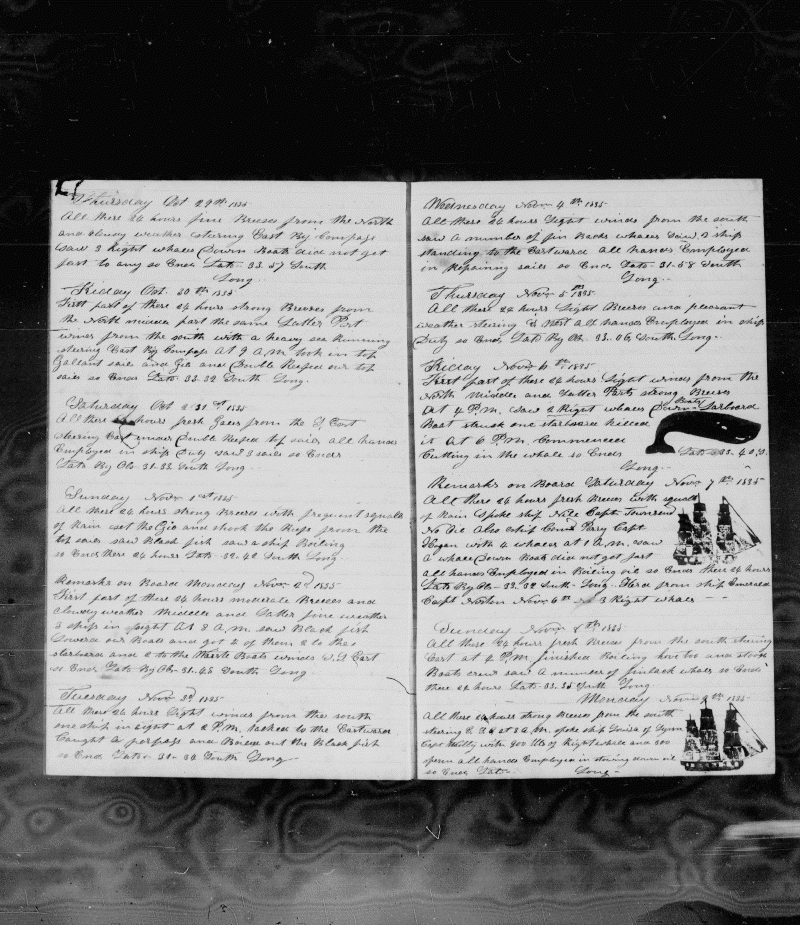 Thursday Oct 29th 1835
All these 24 hours fine Breeses from the North
and cloudy weather stering East By Compass
Saw 3 Right whales Down Boats did not get
fast to any so Ends Latt- 33.57 South
Long.
Friday Oct. 30th 1835
First part of these 24 hours strong Breeses from
the North middle part the same Latter Part
wines from the south with a heavy sea Running
stering East By Compass At 9 A.M. took in top
Gallant sails and Gib and Duble Reefed our top
sails so Ends Latt- 33.32 South Long.
Saturday Oct 31st 1835
All these 24 hours fresh Gales from the S. East
stering East under Duble Reefed top sails all hands
Employed in ship Duty saw 3 sails so Ends
Latt By Obs- 31.33 South Long-
Sunday Nov 1st 1835
All these 24 hours strong Breeses with frequent squals
of Rain set the Gib and shook the Reefs from the
top sails saw Black fish saw a ship Boiling
so Ends these 24 hours Latt- 32.42 South Long.
Remarks on Board Monday Nov 2d 1835
First part of these 24 hours moderate Breeses and
cloudy weather Middle and Latter fine weather
3 ships in sight At 8 A.M. saw Black fish
Lowerd our Boats and got 4 of them 2 to the
starboard and 2 to the Waste Boats winds S. East
so Ends Latt- By Obs- 31.48 South Long.
Tuesday Nov. 3d 1835
All these 24 hours Light winds from the south
one ship in sight at 2 P.M. tacked to the Eastward
Caught a porpass and Boiled out the Black fish
so Ends Latt- 31-30 South Long-
Wednesday Nov 4th 1835
All these 24 hours Light winds from the south
saw A number of fin Backs whales saw 2 ship
standing to the Eastward all hands Employed
in Repairing sails so Ends Latt- 31-58 South
Long-
Thursday Nov 5th 1835
All these 24 hours Light Breeses and pleasant
weather stering East all hands Employed in ship
Duty so Ends Latt By Ob. 33.06 South Long-
Friday Nov 6th 1835
First part of these 24 hours Light winds from the
North Middle and Latter Parts strong Breeses
At 4 P.M. saw 2 Right whales Down Boats Larboard
Boat struck one starboard killed
it At 6 P.M. Commenced
Cutting in the whale so Ends Latt- 33.40 S.
Long-
Remarks on Board Saturday Nov 7th 1835
All these 24 hours fresh Breeses with squals
of Rain spoke ship Nile Capt Townsend
No Oil Also ship Comd Perry Capt
with 4 whales at 1 A.M. saw
a whale Down Boats did not get fast
all hands Employed in Boiling oil so Ends these 24 hours
Latt By Ob- 33.32 South- Long- Herd from ship Emerald
Capt Nov 6th 3 Right whales
Sunday Nov 8th 1835
All these 24 hours fresh Breeses from the south stering
East at 4 P.M. finished Boiling
Boats crew saw A number of finback whales so Ends
these 24 hours Latt- 33.35 South Long.
Monday Nov 9th 1835
All these 24 hours strong Breeses from the south
stering E. at 8 A.M. spoke ship Louisa of Lynn
Capt with 900 bbls of Right whale and 300
sperm all hands Employed in stowing down oil
so Ends Latt- Long-